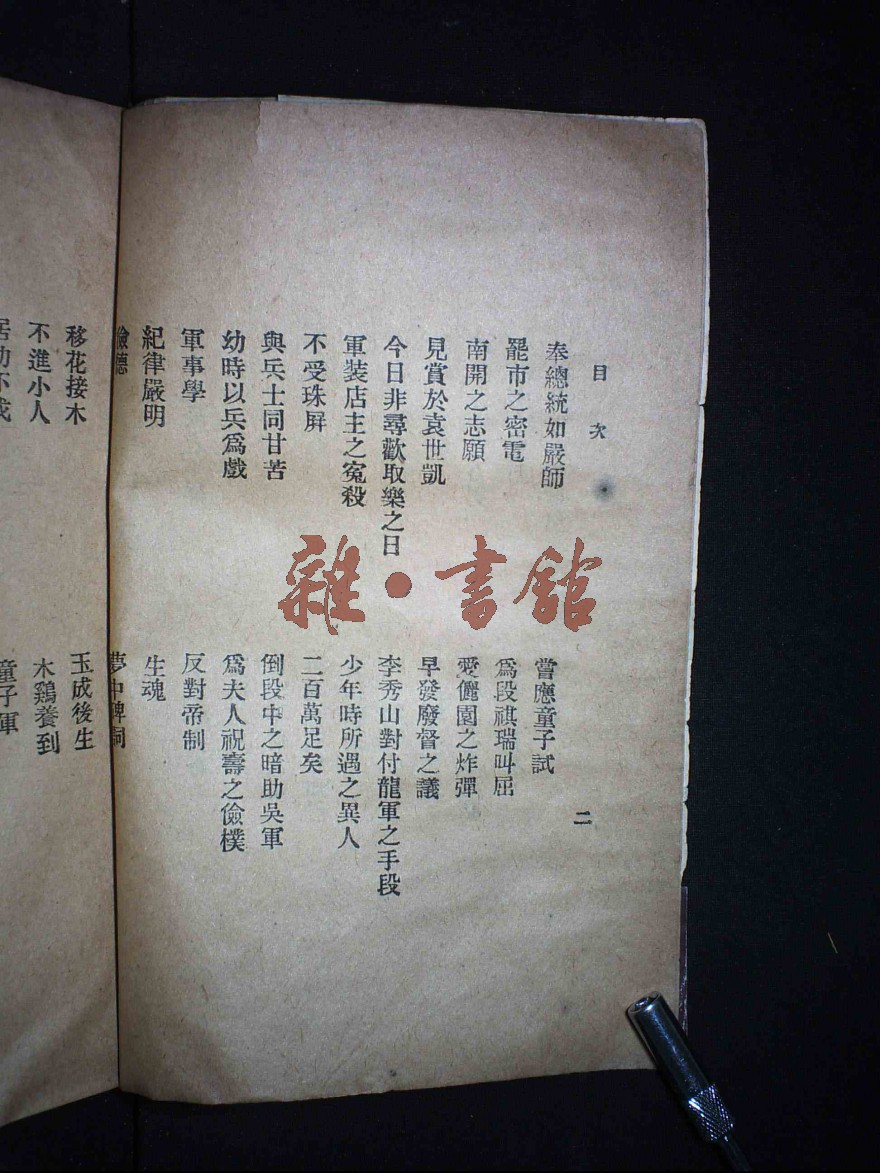 目次
二
奉總統如嚴師
嘗應童子試
罷市之密電
爲段祺瑞叫屈
南開之志願
愛儷園之炸彈
見賞於袁世凱
早發廢督之議
今日非尋歡取樂之日
李秀山對付龍軍之手段
軍裝店主之寃殺
少年時所遇之異人
不受珠屏
二百萬足矣
與兵士同甘苦
倒段中之暗助吳軍
幼時以兵爲戲
爲夫人祝壽之儉樸
軍事學
反對帝制
紀律嚴明
生魂
儉德
夢中
移花接木
玉成後生
不進小人
木鷄養到
童子軍
雜·書館